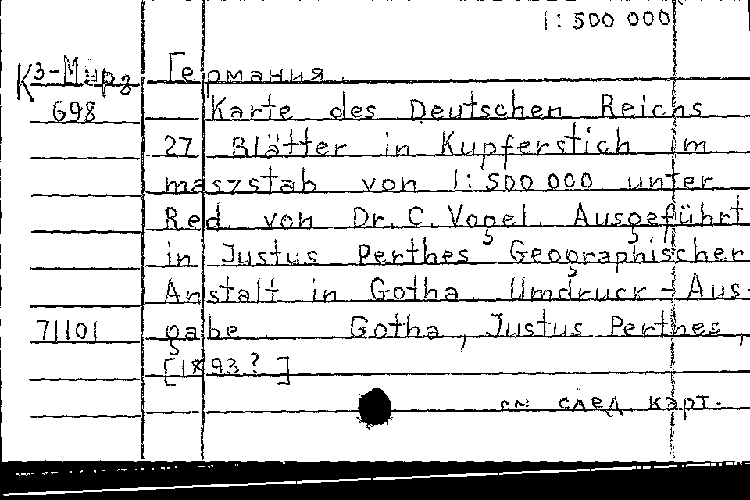 1:500 000
К3-Мирз Германия.
698 Karte des Deutschen Reichs
27 Blätter in Kupferstich im
maszstab von 1:500 000 unter
Red von Dr. C. Vogel. Ausgeführt
in Justus Perthes Geographischer
Anstalt in Gotha Umdruck-Aus-
71101 gabe Gotha, Justus Perthes,
[1893?]
см след. карт.